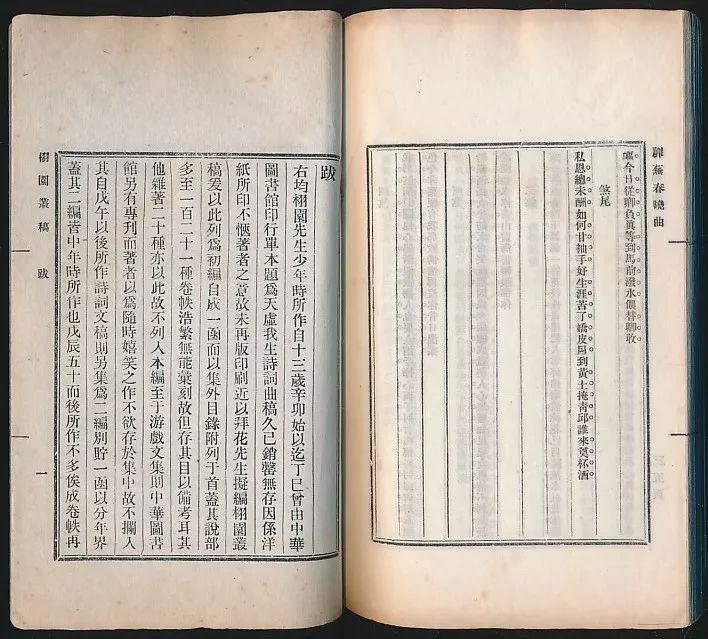 蘼蕪春曉曲
今日從卿負眞等到馬前潑水儂替卿收
煞尾
私恩總未酬如何甘抽手好生涯苦了嬌皮到黃土掩靑邱誰來奠杯酒
跋
右均栩園先生少年時所作自十三歲辛卯始以迄丁巳曾由中華
圖書館印行單本題爲天虛我生詩詞曲稿久已銷罄無存因係洋
紙所印不愜著者之意故未再版印刷近以拜花先生擬編栩園叢
稿爰以此列爲初編自成一函而以集外目錄附列于首蓋其說部
多至一百二十一種卷帙浩繁無能彙刻故但存其目以備考耳其
他雜著二十種亦以此故不列入本編至于游戲文集則中華圖書
館另有專刊而著者以爲隨時嬉笑之作不欲存於集中故不攔入
其自戊午以後所作詩詞文稿則另集爲二編別貯一函以分年界
蓋其二編皆中年時所作也戊辰五十而後所作不多俟成卷帙再
栩園叢稿 跋 一